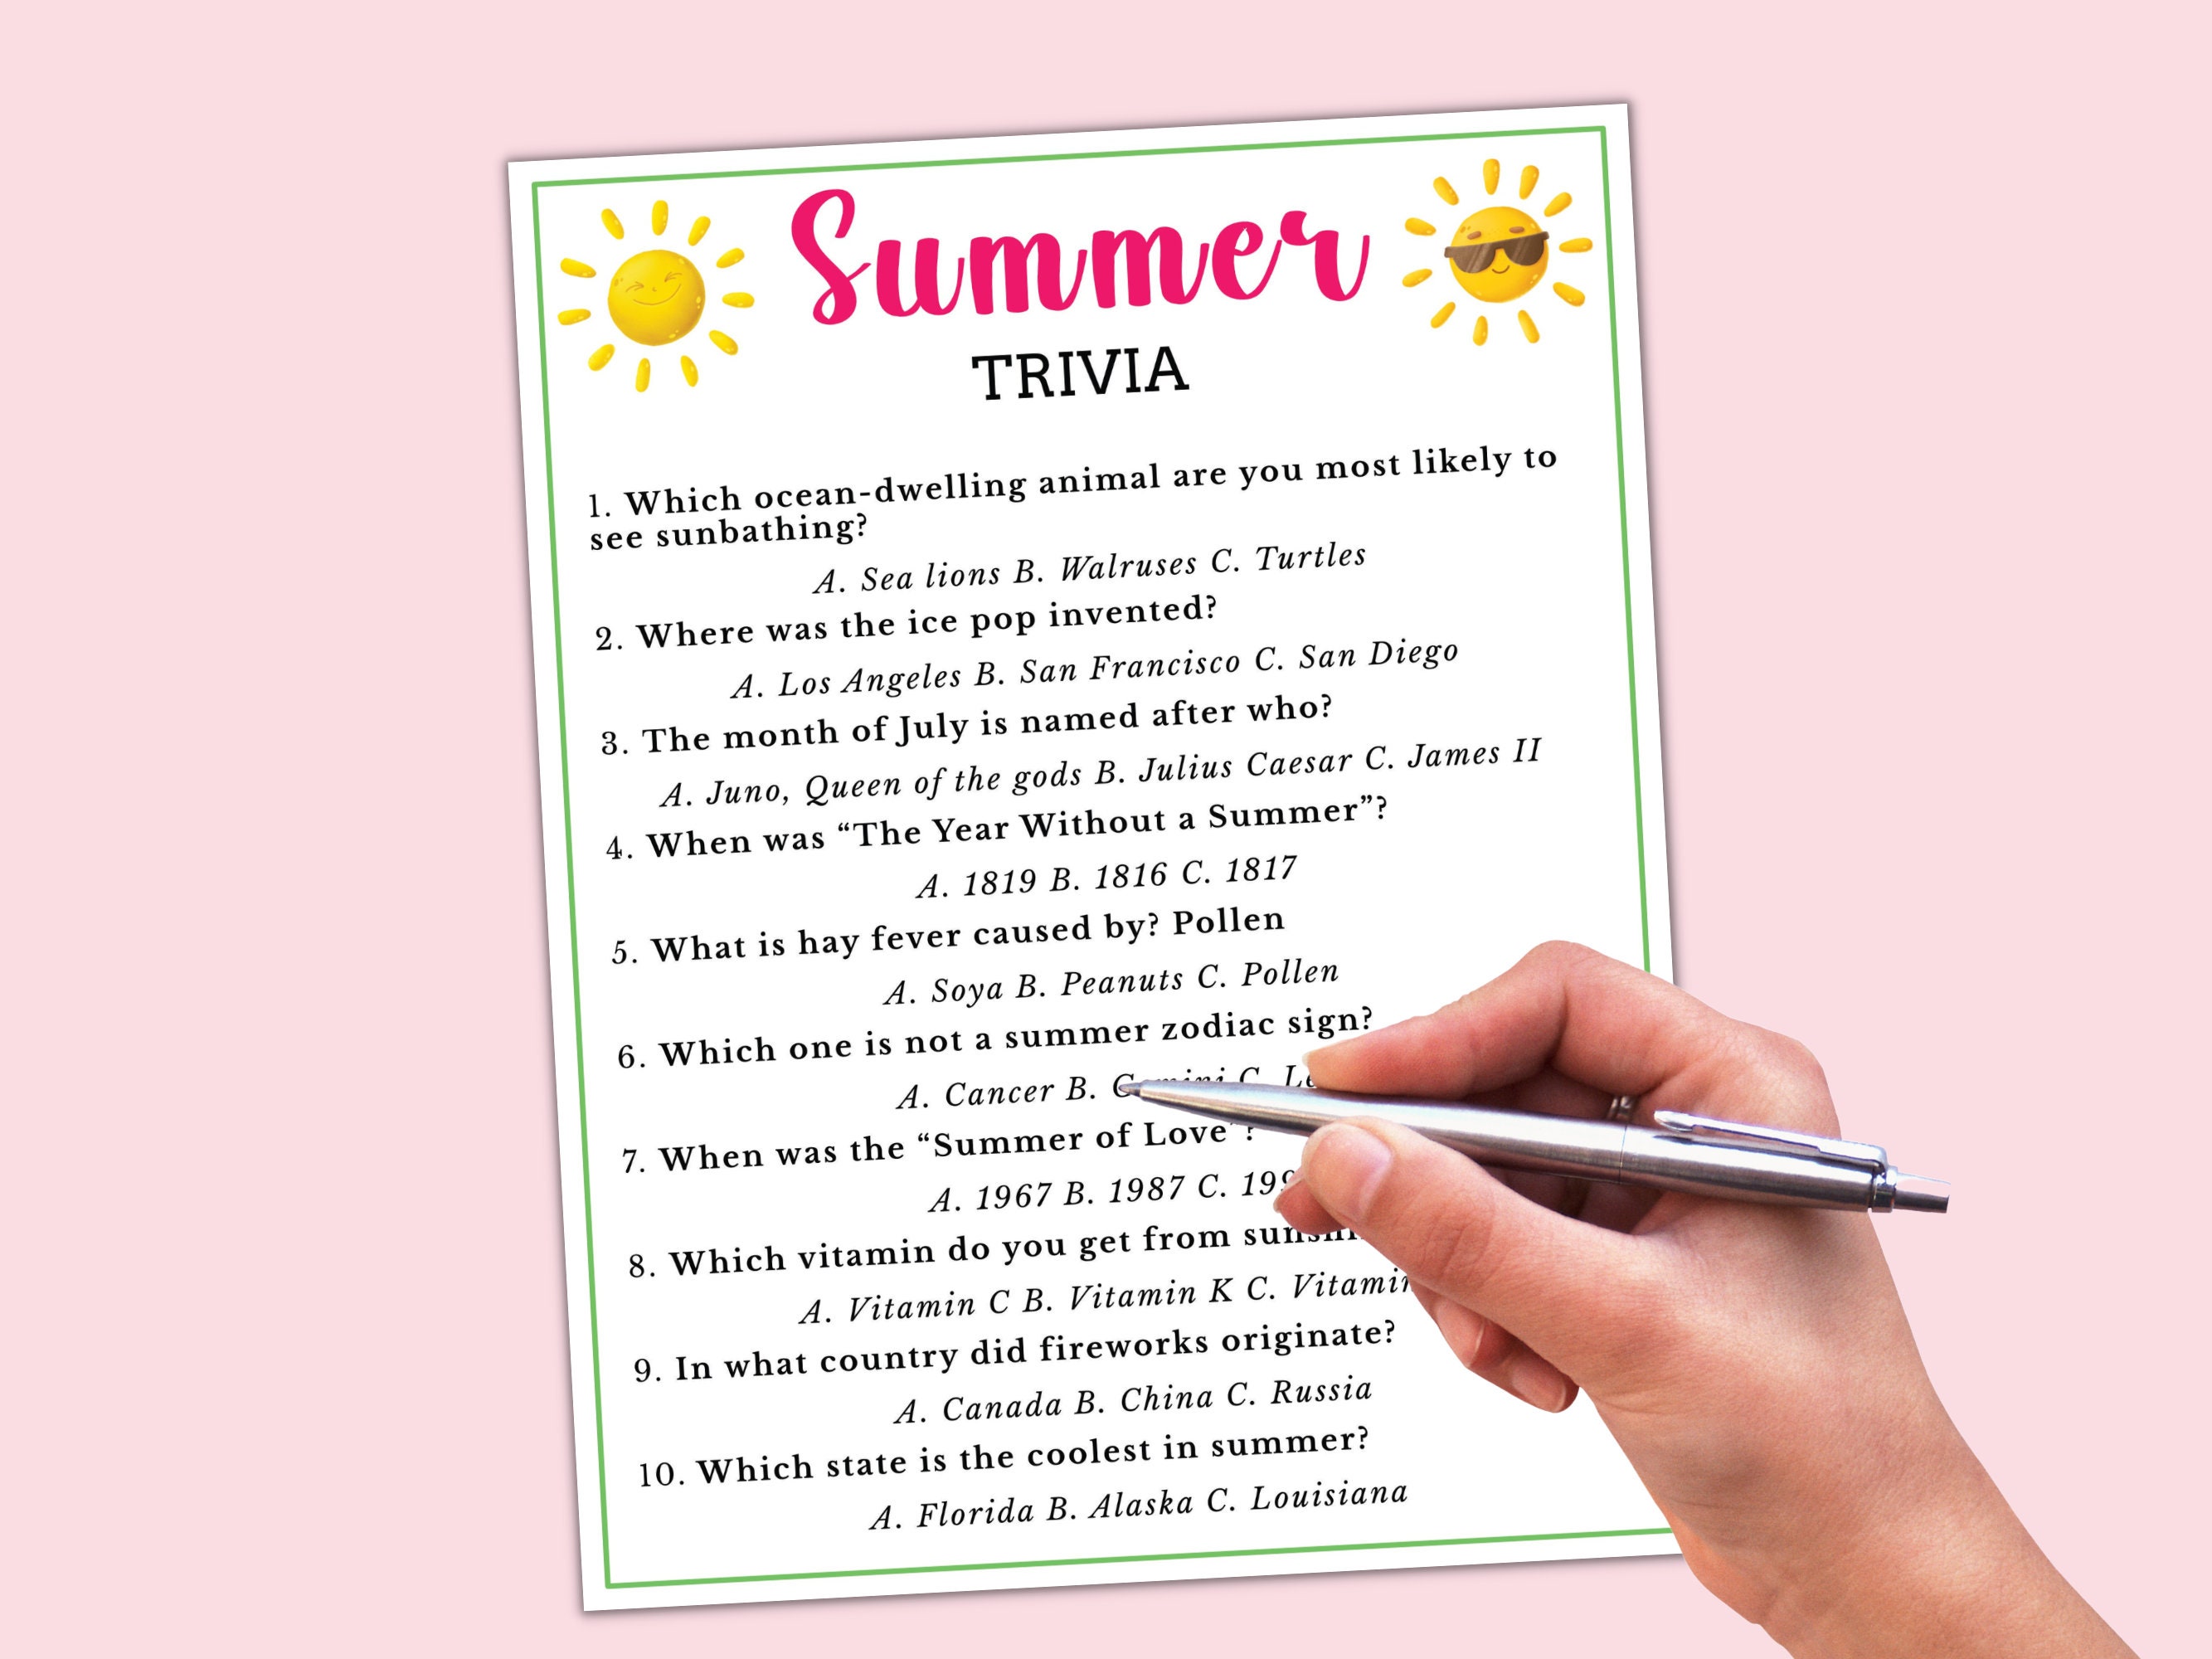 Summer
TRIVIA
1. Which ocean-dwelling animal are you most likely to
see sunbathing?
A. Sea lions B. Walruses C. Turtles
2. Where was the ice pop invented?
A. Los Angeles B. San Francisco C. San Diego
3. The month of July is named after who?
A. Juno, Queen of the gods B. Julius Caesar C. James II
4. When was “The Year Without a Summer”?
A. 1819 B. 1816 C. 1817
5. What is hay fever caused by? Pollen
A. Soya B. Peanuts C. Pollen
6. Which one is not a summer zodiac sign?
A. Cancer B. C.
7. When was the “Summer of Love”?
A. 1967 B. 1987 C.
8. Which vitamin do you get from
A. Vitamin C B. Vitamin K C. Vitamin
9. In what country did fireworks originate?
A. Canada B. China C. Russia
10. Which state is the coolest in summer?
A. Florida B. Alaska C. Louisiana